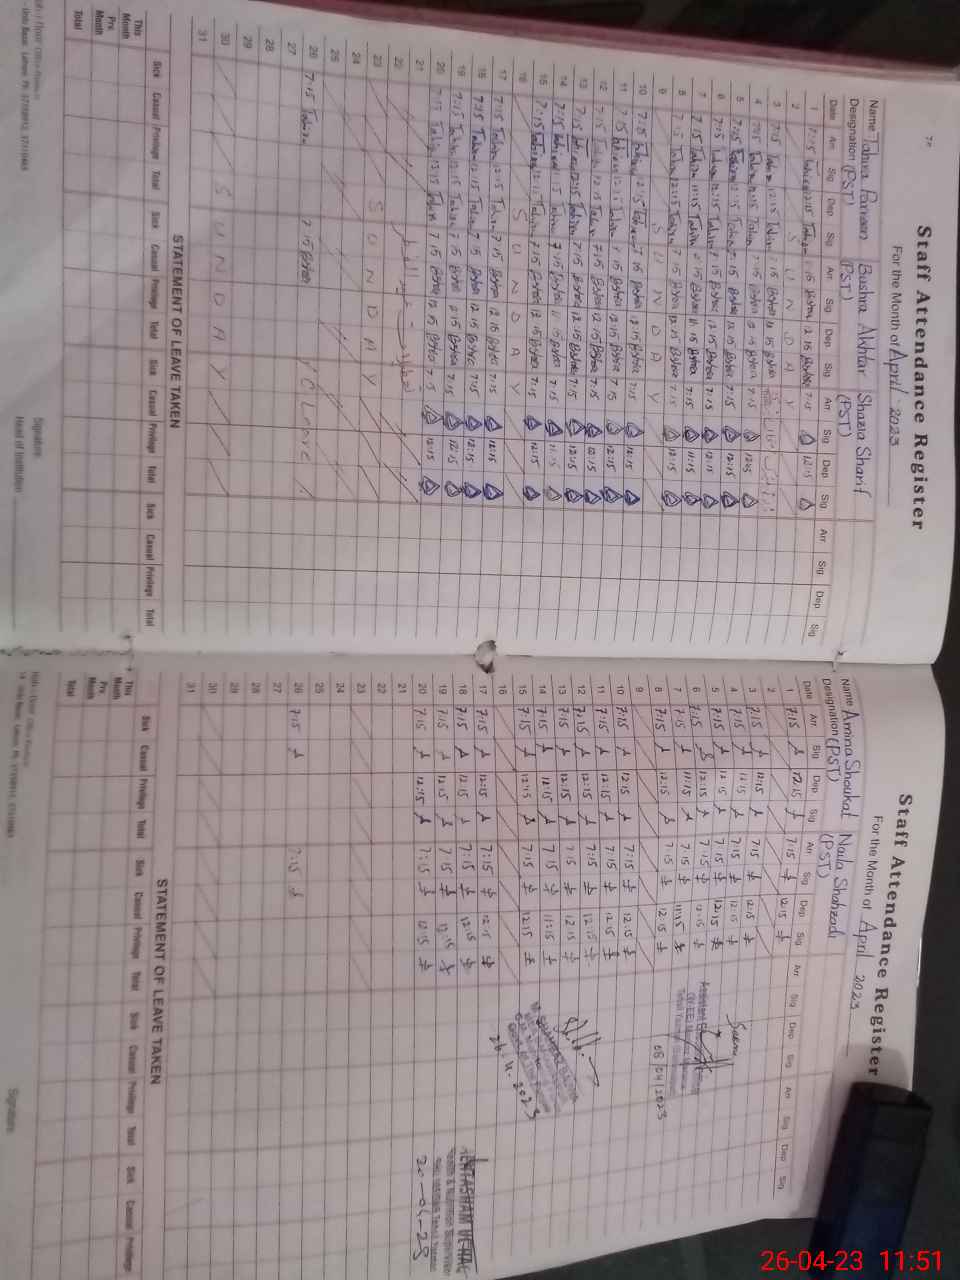 Staff Attendance Register
For the Month of April 2023
Name Tahira Parveen Bushra Akhtar Shazia Sharif
Designation (PST) (PST) (PST)
Date Arr Sig Dep Sig Arr Sig Dep Sig Arr Sig Dep Sig Arr Sig Dep Sig
1 7:15 12:15 7:15 12:15 7:15 12:15
2 S U N D A Y
3 7:15 Tahira 12:15 Tahira 7:15 Bshra 12:15 Bshra
4 7:15 Tahira 12:15 Tahira 7:15 Bshra 12:15 Bshra 7:15 12:15
5 7:15 Tahira 12:15 Tahira 7:15 Bshra 12:15 Bshra 7:15 12:15
6 7:15 Tahira 12:15 Tahira 7:15 Bshra 12:15 Bshra 7:15 12:15
7 7:15 Tahira 11:15 Tahira 7:15 Bshra 11:15 Bshra 7:15 11:15
8 7:15 Tahira 12:15 Tahira 7:15 Bshra 12:15 Bshra 7:15 12:15
9 S U N D A Y
10 7:15 Tahira 12:15 Tahira 7:15 Bshra 12:15 Bshra 7:15 12:15
11 7:15 Tahira 12:15 Tahira 7:15 Bshra 12:15 Bshra 7:15 12:15
12 7:15 Tahira 12:15 Tahira 7:15 Bshra 12:15 Bshra 7:15 12:15
13 7:15 Tahira 12:15 Tahira 7:15 Bshra 12:15 Bshra 7:15 12:15
14 7:15 Tahira 11:15 Tahira 7:15 Bshra 11:15 Bshra 7:15 11:15
15 7:15 Tahira 12:15 Tahira 7:15 Bshra 12:15 Bshra 7:15 12:15
16 S U N D A Y
17 7:15 Tahira 12:15 Tahira 7:15 Bshra 12:15 Bshra 7:15 12:15
18 7:15 Tahira 12:15 Tahira 7:15 Bshra 12:15 Bshra 7:15 12:15
19 7:15 Tahira 12:15 Tahira 7:15 Bshra 12:15 Bshra 7:15 12:15
20 7:15 Tahira 12:15 Tahira 7:15 Bshra 12:15 Bshra 7:15 12:15
21
22
23 S U N D A Y
24
25
26 7:15 Tahira 7:15 Bshra C Leave
27
28
29
30 S U N D A Y
31
STATEMENT OF LEAVE TAKEN
Sick Casual Privilege Total Sick Casual Privilege Total Sick Casual Privilege Total Sick Casual Privilege Total
This Month
Prv. Month
Total
Signature
Head of Institution
Staff Attendance Register
For the Month of April 2023
Name Amina Shoukat Naila Shahzadi
Designation (PST) (PST)
Date Arr Sig Dep Sig Arr Sig Dep Sig Arr Sig Dep Sig Arr Sig Dep Sig
1 7:15 12:15 7:15 12:15
2
3 7:15 12:15 7:15 12:15
4 7:15 12:15 7:15 12:15
5 7:15 12:15 7:15 12:15
6 7:15 12:15 7:15 12:15
7 7:15 11:15 7:15 11:15
8 7:15 12:15 7:15 12:15 08/04/2023
9
10 7:15 12:15 7:15 12:15
11 7:15 12:15 7:15 12:15
12 7:15 12:15 7:15 12:15
13 7:15 12:15 7:15 12:15
14 7:15 11:15 7:15 11:15
15 7:15 12:15 7:15 12:15
16
17 7:15 12:15 7:15 12:15
18 7:15 12:15 7:15 12:15
19 7:15 12:15 7:15 12:15
20 7:15 12:15 7:15 12:15
21
22
23
24
25
26 7:15 7:15
27
28
29
30
31
26.4.2023
Health & Nutrition Supervisor
20-04-23
STATEMENT OF LEAVE TAKEN
Sick Casual Privilege Total Sick Casual Privilege Total Sick Casual Privilege Total Sick Casual Privilege
This Month
Prv. Month
Total
Signature
26-04-23 11:51